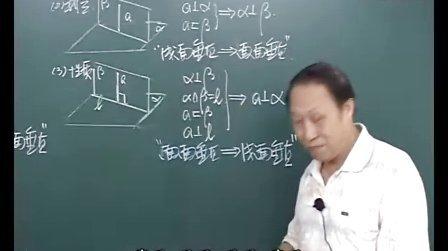 a⊥α
a⊂β
⇒α⊥β.
"线面垂直⇒面面垂直".
(3)性质
α⊥β
α∩β=l
a⊂β
a⊥l
⇒a⊥α
"面面垂直⇒线面垂直"
面垂直"